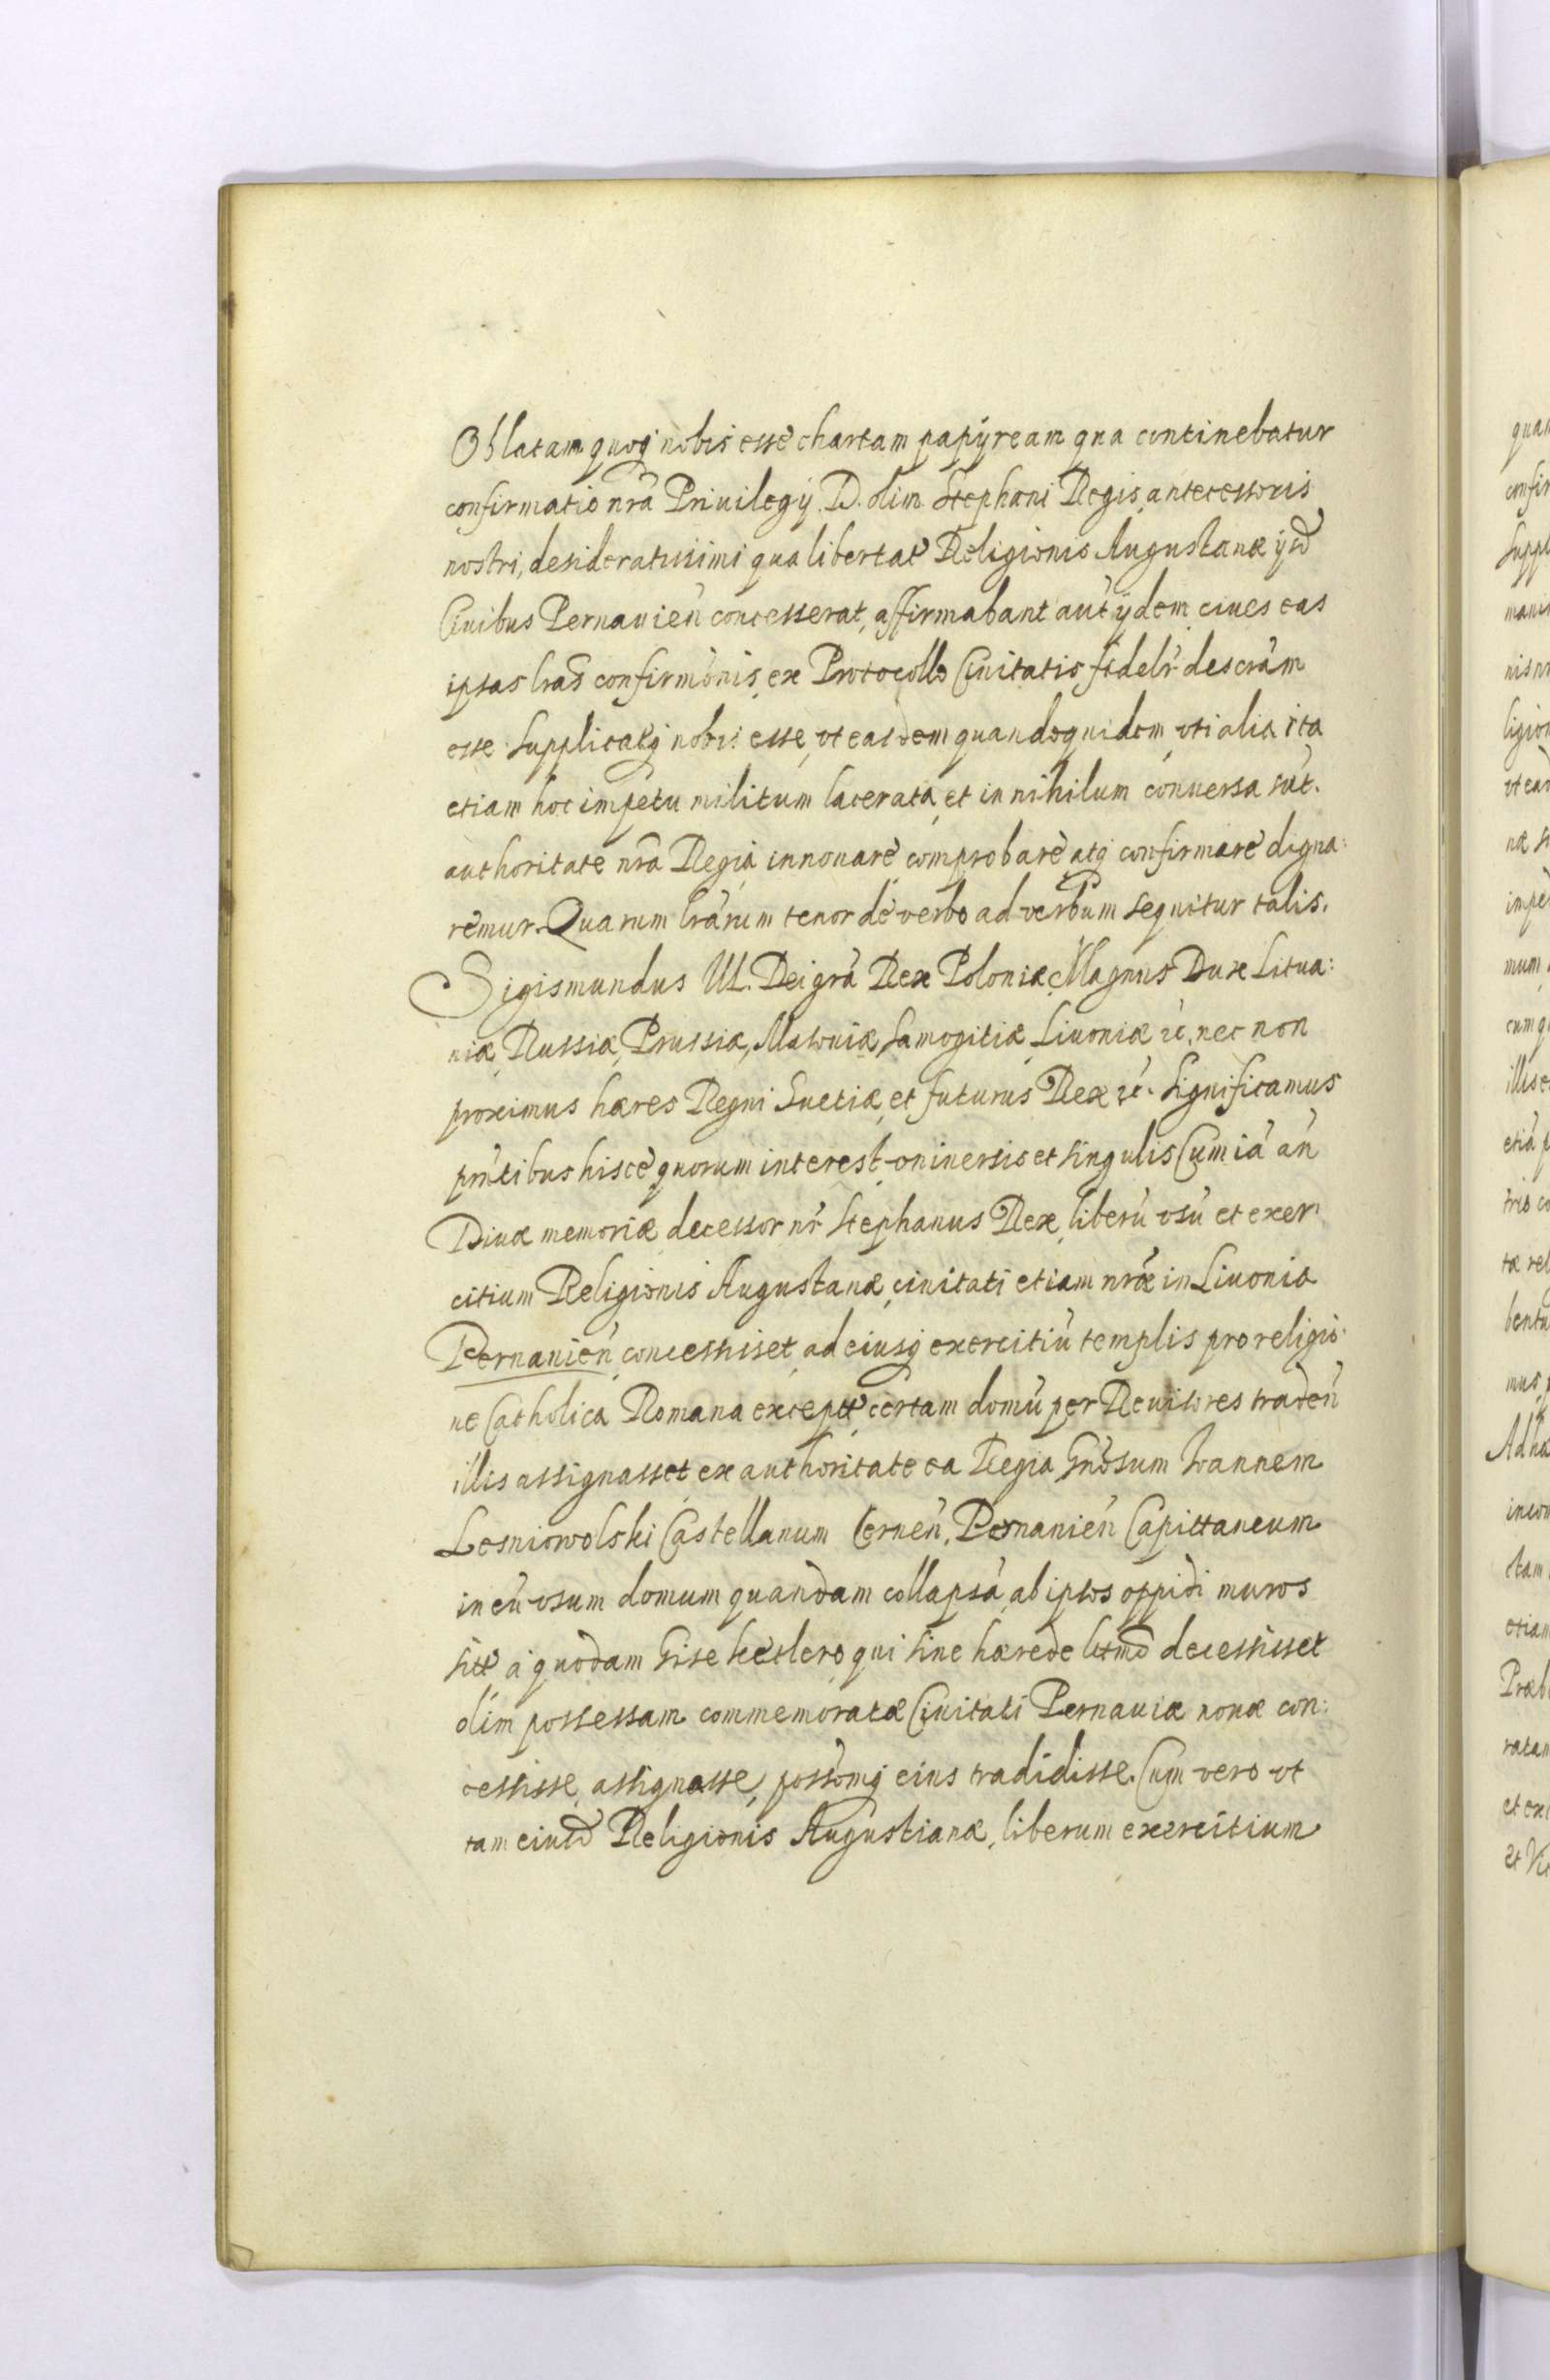 Oblatam quoq nobis esse chartam papyream qua continebatur
confirmatio nrã Priuilegÿ D. olim Stephani Regis antecessoris
nostri, desideratissimi qua libertat Religionis Augustanæ ÿsd
Ciuibus Pernauień concesserat, affirmabant aut ÿdem ciues eas
ipsas lrãs confirmõnis, ex Protocollo Ciuitatis fidelr descrám
esse Supplicatq nobis esse, vt easdem quandoquidem vti alia ita
etiam hoc impetu militum lacerata, et in nihilum conuersa sút.
authoritate nrã Regia innouare comprobare atq confirmare digna:
remur. Quarum lrãrum tenor de verbo ad verbum sequitur talis.
Sigismundus III. Dei grã Rex Poloniæ, Magnus Dux Litua:
niæ, Russiæ, Prussiæ, Masouiæ, Samogitiæ, Liuoniæ ꝛc. nec non
proximus hæres Regni Suetiæ, et futurus Rex ꝛc. Significamus
prñtibus hisce quorum interest vniuersis et singulis Cum iã añ
Diuæ memoriæ decessor nr̃ Stephanus Rex, liberũ vsũ et exer
citium Religionis Augustanæ, ciuitati etiam nrãe in Liuonia
Pernauień, concessisset, ad eiusq exercitiũ templis pro religio:
ne Catholica Romana except, certam domũ per Reuisores tradeń
illis assignasset ex authoritate ea Regia Gñosum Ioannem
Lesniowolski Castellanum Cerneń, Pernanień Capittaneum
in eũ vsum domum quandam collapsã, ab ipsos oppidi muros
sit a quodam Gise Keslero qui sine hærede decessisset
olim possessam commemoratæ Ciuitati Pernauiæ nouæ con:
cessisse, assignasse, possõmq eius tradidisse. Cum vero vt
tam eiusd Religionis Augustianæ, liberum exercitium